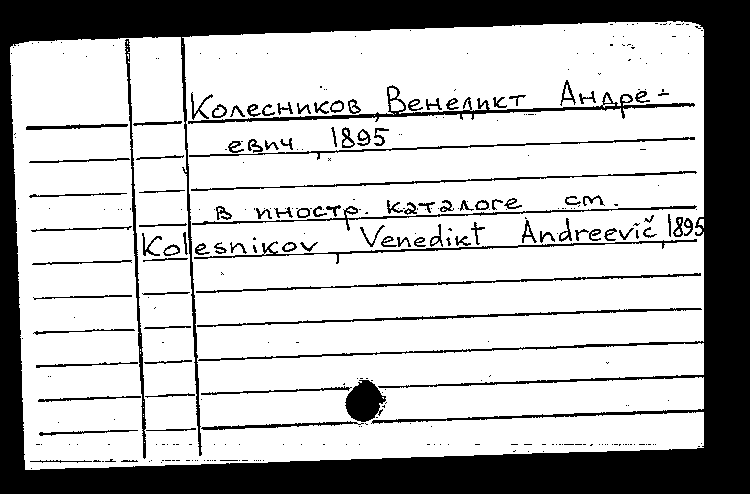 Колесников, Венедикт Андре-
евич, 1895
в иностр. каталоге см.
Kolesnikov, Venedikt Andreevič, 1895